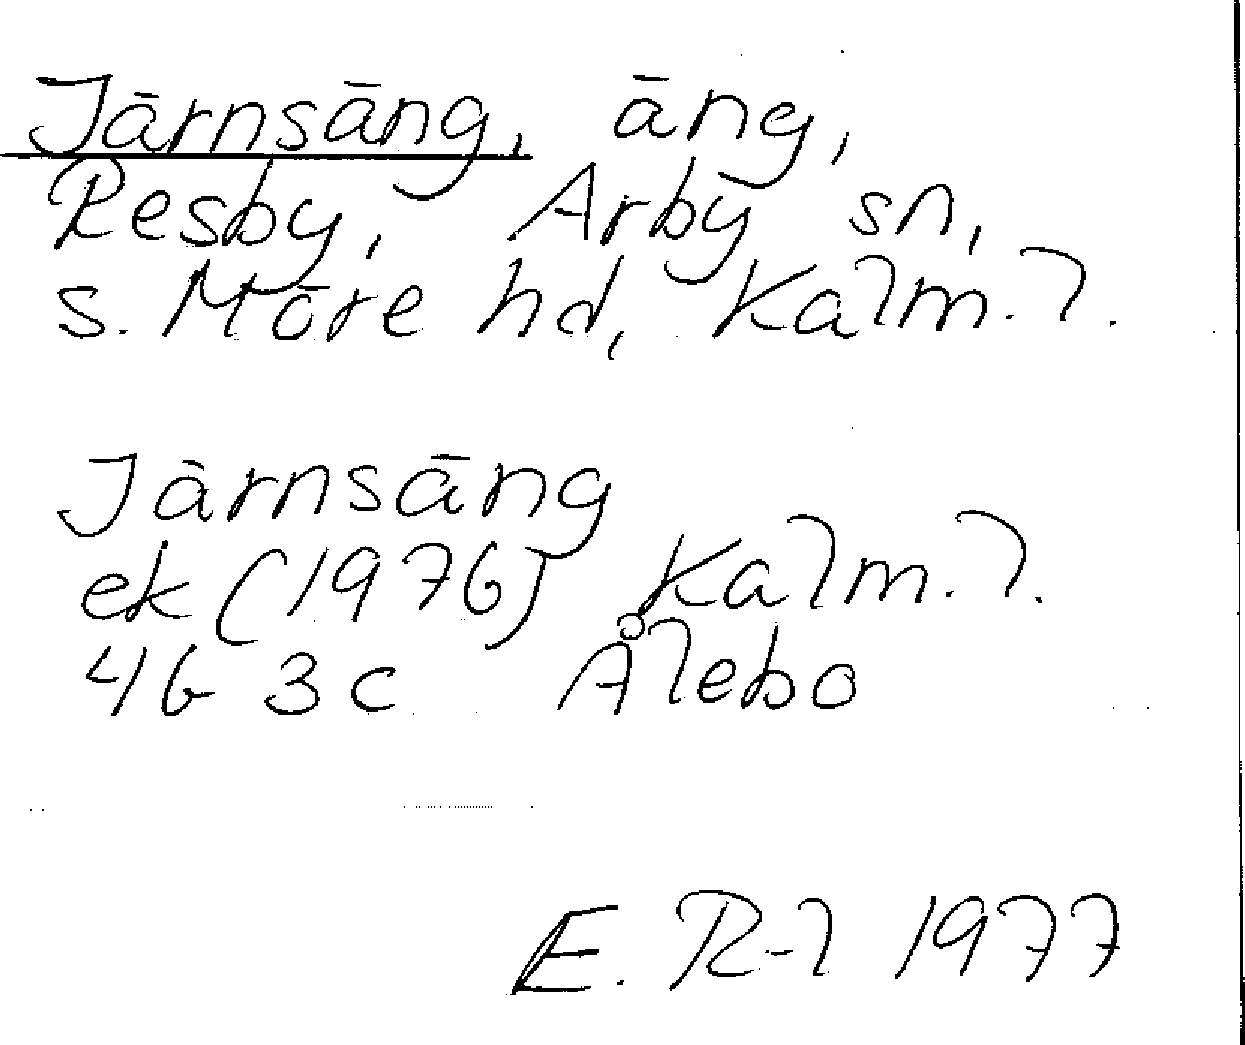 Järnsäng, äng,
Resby, Arby sn,
s. Möre hd, Kalm. l.
Järnsäng
ek (1976) Kalm. l.
4G 3c Ålebo
E. R-l 1977